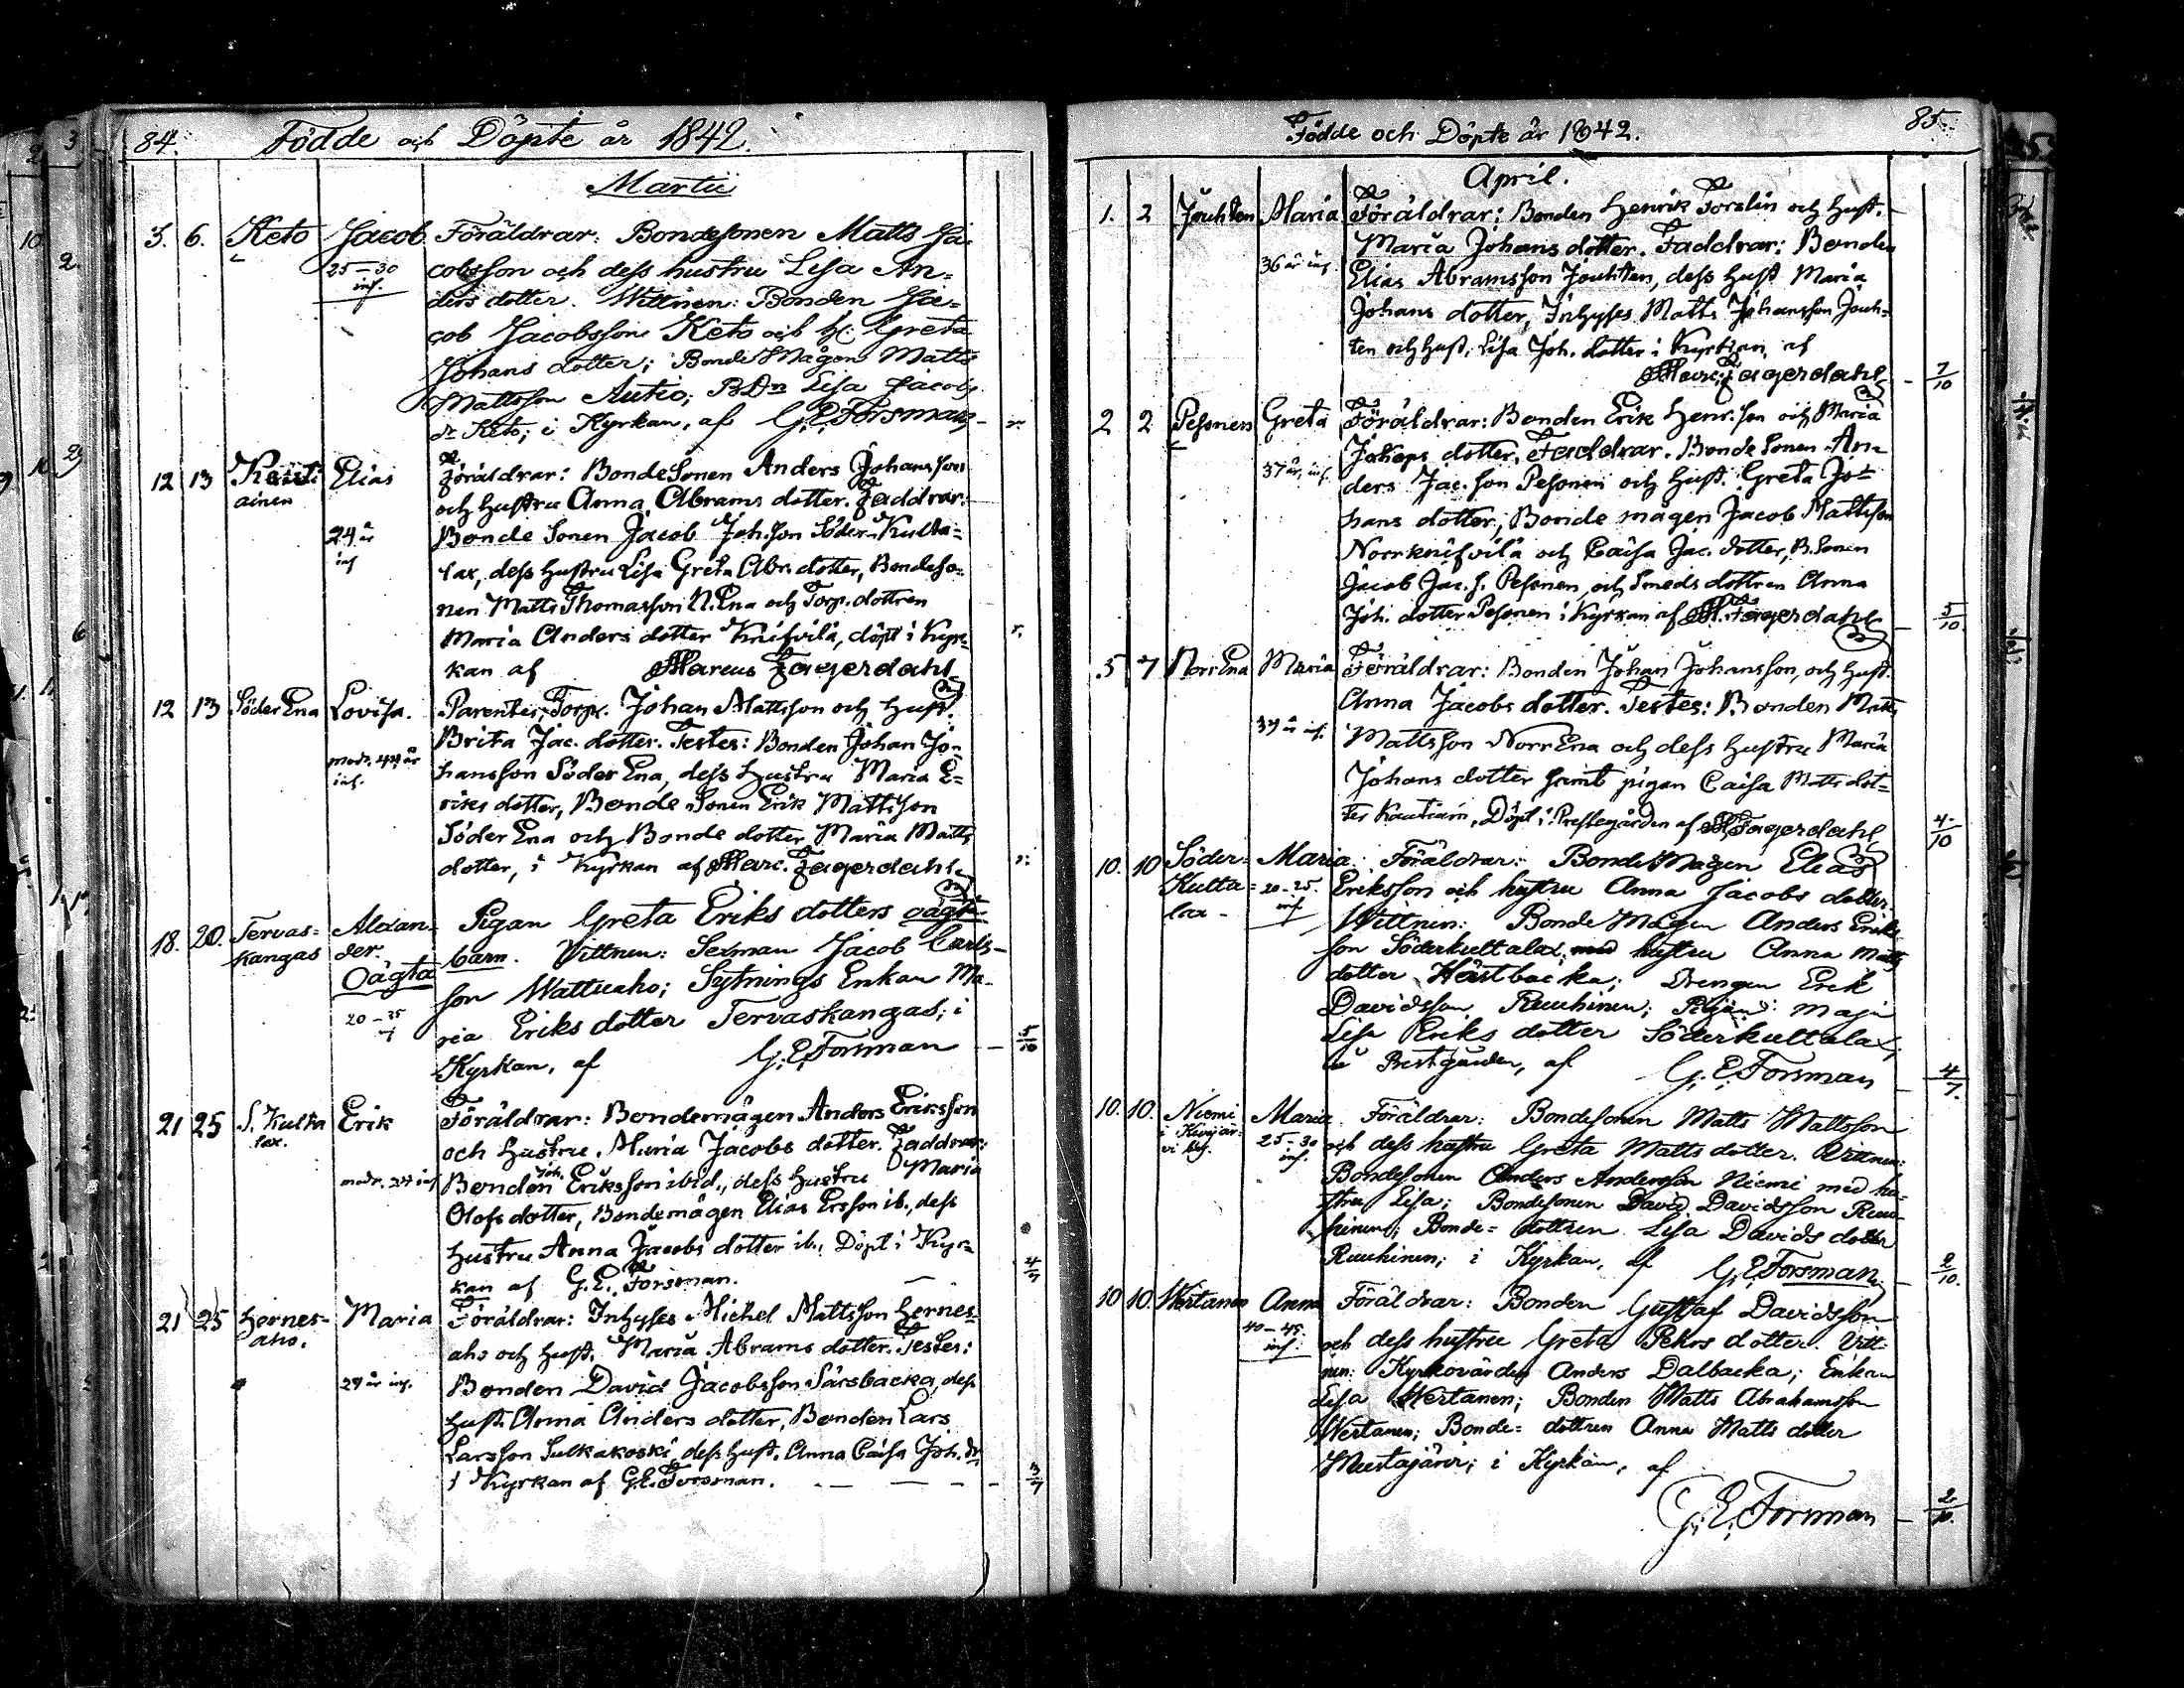 84. Födde och Döpte år 1842.
Martii
5. 6. Keto Jacob Föräldrar: Bondesonen Matts Ja-
25-30 inf. cobsson och dess hustru Lisa An-
ders dotter. Wittnen: Bonden Ja-
cob Jacobsson Keto och H. Greta
Johans dotter; BondeMågen Matts
Mattsson Autio; BDn Lisa Jacobs
dr Keto; i Kyrkan, af G.E. Forsman r.
12 13 Kauti- Elias Föräldrar: BondeSonen Anders Johansson
ainen och hustru Anna Abrams dotter. Faddrar:
24 år Bonde Sonen Jacob Joh.son Söder-Kulta-
inf lax, dess hustru Lisa Greta Abr. dotter, Bondeso-
nen Matts Thomasson N.Ena och Torp. dottren
Maria Anders dotter Knifvilä, döpt i Kyr- r.
kan af Marcus Fagerdahl
12 13 Söder Ena Lovisa. Parentes, Torp. Johan Mattsson och Hust.
Brita Jac. dotter. Testes: Bonden Johan Jo-
modr. 44 år hansson Söder Ena, dess Hustru Maria E-
inf. riks dotter, Bonde Sonen Erik Mattsson
Söder Ena och Bonde dotter Maria Matts
dotter, i Kyrkan af Marc. Fagerdahl r.
18. 20. Tervas- Alexan- Pigan Greta Eriks dotters oägta
kangas der. barn. Vittnen: Sexman Jacob Carls-
Oägta son Wattuaho; Sytnings Enkan Ma-
20-25 inf ria Eriks dotter Tervaskangas; i
Kyrkan, af G.E. Forsman 5/10
21 25 S. Kulta Erik Föräldrar: Bondemågen Anders Eriksson
lax. och Hustru Maria Jacobs dotter. Faddrar:
modr. 24 inf Bonden Joh. Eriksson ibid., dess hustru Maria
Olofs dotter, Bondemågen Elias Ersson ib., dess
hustru Anna Jacobs dotter ib., Döpt i Kyr-
kan af G.E. Forsman. 4/7
21 25 Hernes- Maria Föräldrar: Inhyses Michel Mattsson Hernes-
aho. aho och Hust. Maria Abrams dotter. Testes:
29 år inf. Bonden David Jacobsson Särsbacka, dess
Hust. Anna Anders dotter, Bonden Lars
Larsson Sulkakoski, dess Hust. Anna Caisa Joh. dr
i Kyrkan af G.E. Forsman. 3/7
Födde och Döpte år 1842. 85.
April.
1. 2 Jouhten Maria Föräldrar: Bonden Henrik Forslin och Hust.
Maria Johans dotter. Faddrar: Bonden
36 år inf. Elias Abramsson Jouhten, dess Hust Maria
Johans dotter, Inhyses Matts Johansson Jouh-
ten och Hust. Lisa Joh. dotter i Kyrkan af
Marc. Fagerdahl 7/10
2 2 Pesonen Greta Föräldrar: Bonden Erik Henr.son och Maria
Johans dotter. Faddrar. Bonde Sonen An-
37 år, inf. ders Jac.son Pesonen och Hust. Greta Jo-
hans dotter, Bonde mågen Jacob Mattsson
Norrknifvilä och Caisa Jac. dotter, B.Sonen
Jacob Jac. s. Pesonen, och Smeds dottren Anna
Joh. dotter Pesonen i Kyrkan af M. Fagerdahl 5/10.
5 7 Norr Ena Maria Föräldrar: Bonden Johan Johansson, och Hust.
Anna Jacobs dotter. Testes: Bonden Matts
39 år inf. Mattsson Norr Ena och dess hustru Maria
Johans dotter samt pigan Caisa Matts dot-
ter Kautiain, Döpt i Prestegården af M Fagerdahl 4/10
10. 10 Söder- Maria. Föräldrar: BondeMågen Elias
Kulta- 20-25. Eriksson och hustru Anna Jacobs dotter.
lax - inf Wittnen: BondeMågen Anders Eriks-
son Söderkultalax, med hustru Anna Matts
dotter Hästbacka; Drengen Erik
Davidsson Ruuhinen; Pigan Maja
Lisa Eriks dotter Söderkultalax;
i Prestgården, af G.E. Forsman 4/7.
10. 10. Niemi Maria Föräldrar: Bondesonen Matts Mattsson
i Kivijär- 25-30 och dess hustru Greta Matts dotter. Vittnen:
vi inf. Bondesonen Anders Andersson Niemi med hu-
stru Lisa; Bondesonen David Davidsson Ruu-
hinen; Bonde- dottren Lisa Davids dotter
Ruuhinen; i Kyrkan, af G.E. Forsman 2/10.
10 10. Wertanen Anna Föräldrar: Bonden Gustaf Davidsson
40-45. inf. och dess hustru Greta Pehrs dotter. Vitt-
nen: Kyrkovärden Anders Dalbacka; Enkan
Lisa Wertanen; Bonden Matts Abrahamsson
Wertanen; Bonde- dottren Anna Matts dotter
Mustajärvi; i Kyrkan, af
G.E. Forsman 2/10.